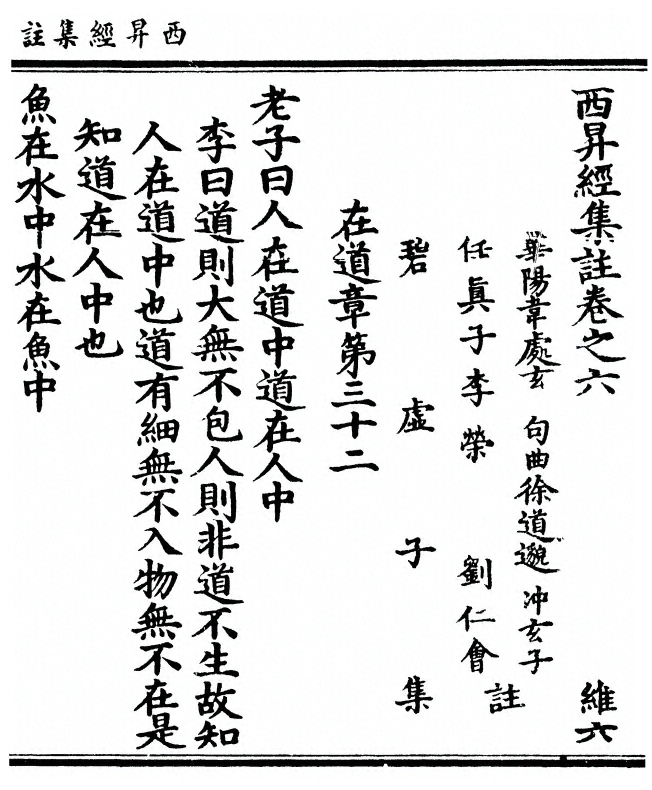 西昇經集註
西昇經集註卷之六 維六
華陽韋處玄 句曲徐道邈 冲玄子
任真子李榮 劉仁會 註
碧虛子 集
在道章第三十二
老子曰人在道中道在人中
李曰道則大無不包人則非道不生故知
人在道中也道有細無不入物無不在是
知道在人中也
魚在水中水在魚中